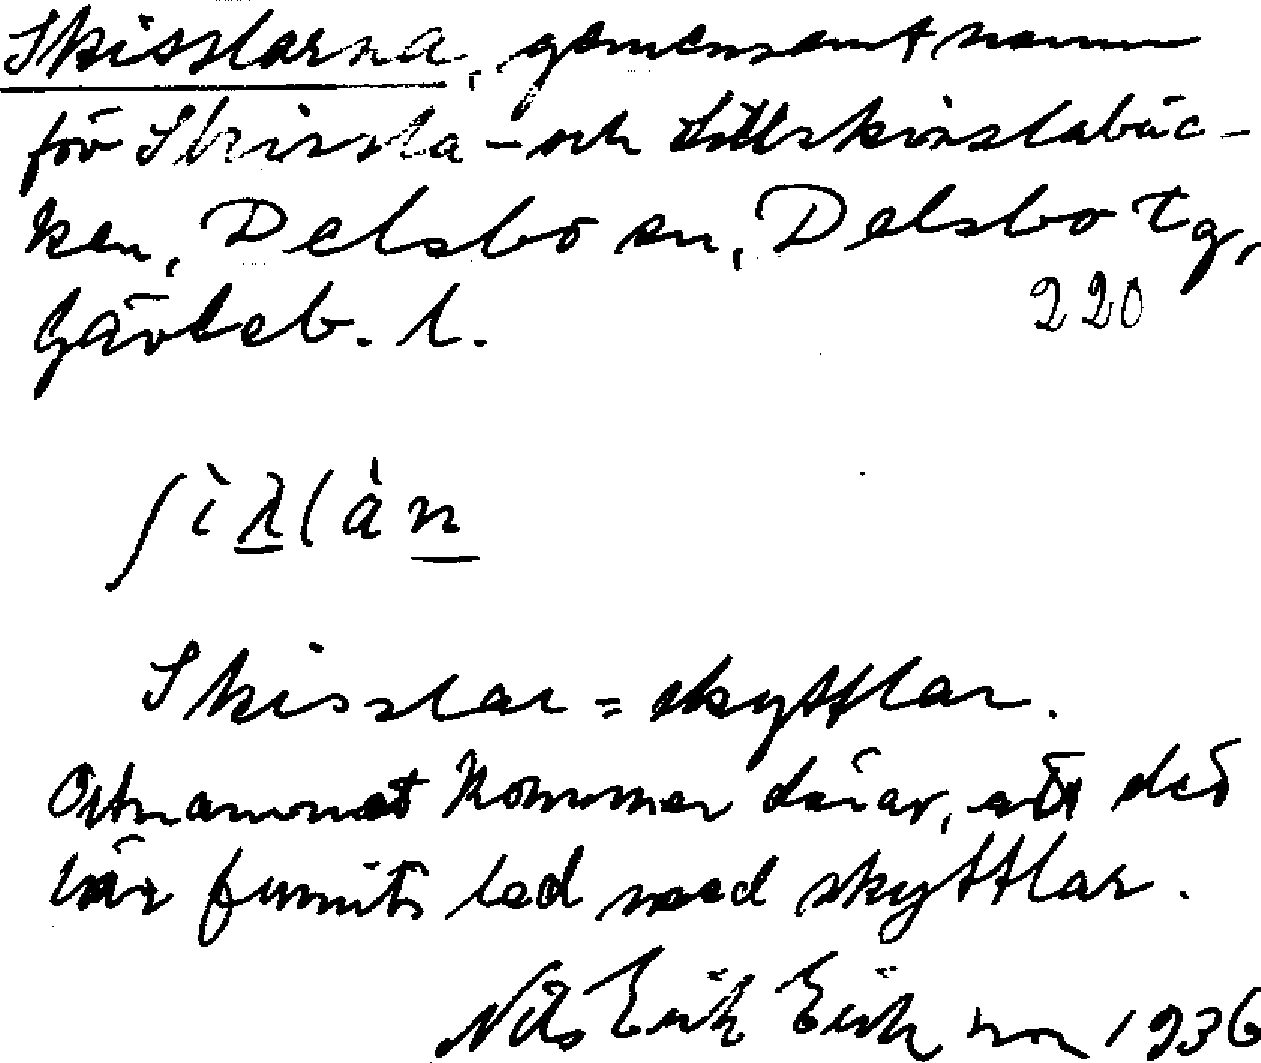 Skisslarna, gemensamt namn
för Skissla- och Lillskisslabäc-
ken, Delsbo sn, Delsbo tg,
Gävleb. l.
220
Skisslar = skyttlar.
Ortnamnet kommer därav, att det
här funnits led med skyttlar.
Nils Erik Erik nov 1936